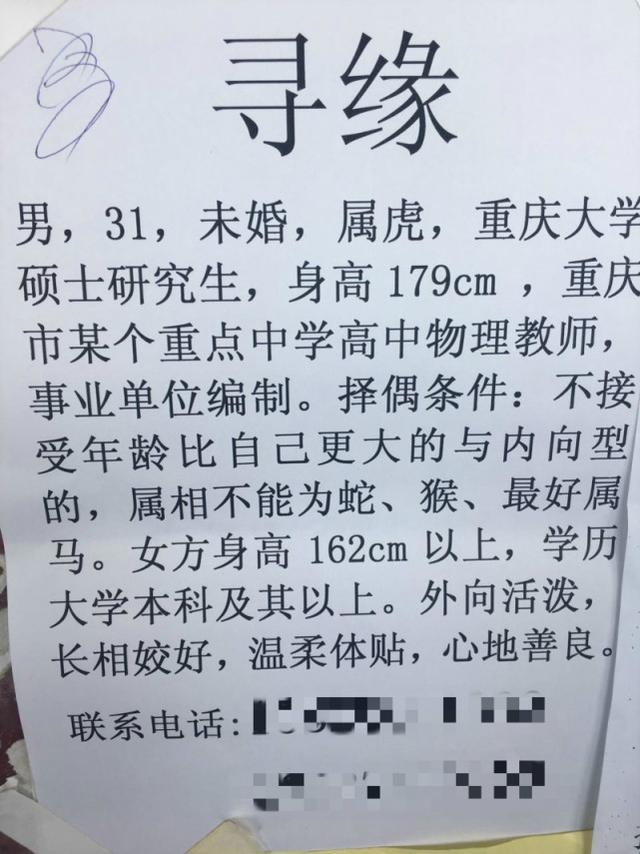 寻缘
男，31，未婚，属虎，重庆大学
硕士研究生，身高179cm，重庆
市某个重点中学高中物理教师，
事业单位编制。择偶条件：不接
受年龄比自己更大的与内向型
的，属相不能为蛇、猴、最好属
马。女方身高162cm以上，学历
大学本科及其以上。外向活泼，
长相姣好，温柔体贴，心地善良。
联系电话: